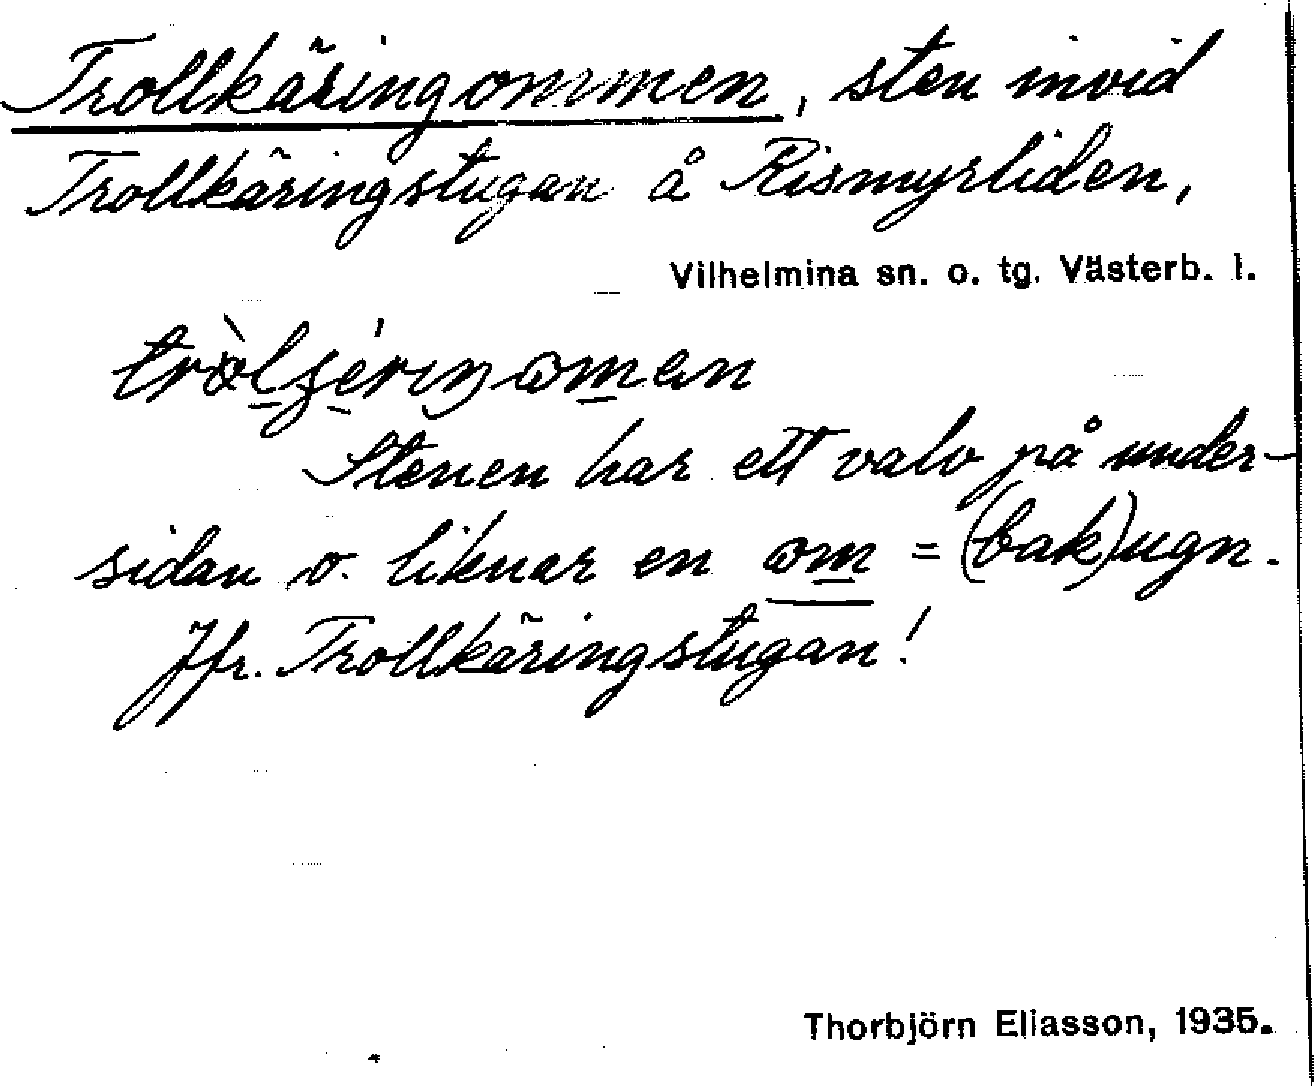 Trollkäringommen, sten invid
Trollkäringstugan å Rismyrliden,
Vilhelmina sn. o. tg. Västerb. l.
Stenen har ett valv på under-
sidan o. liknar en om = (bak)ugn.
Jfr. Trollkäringstugan!
Thorbjörn Eliasson, 1935.